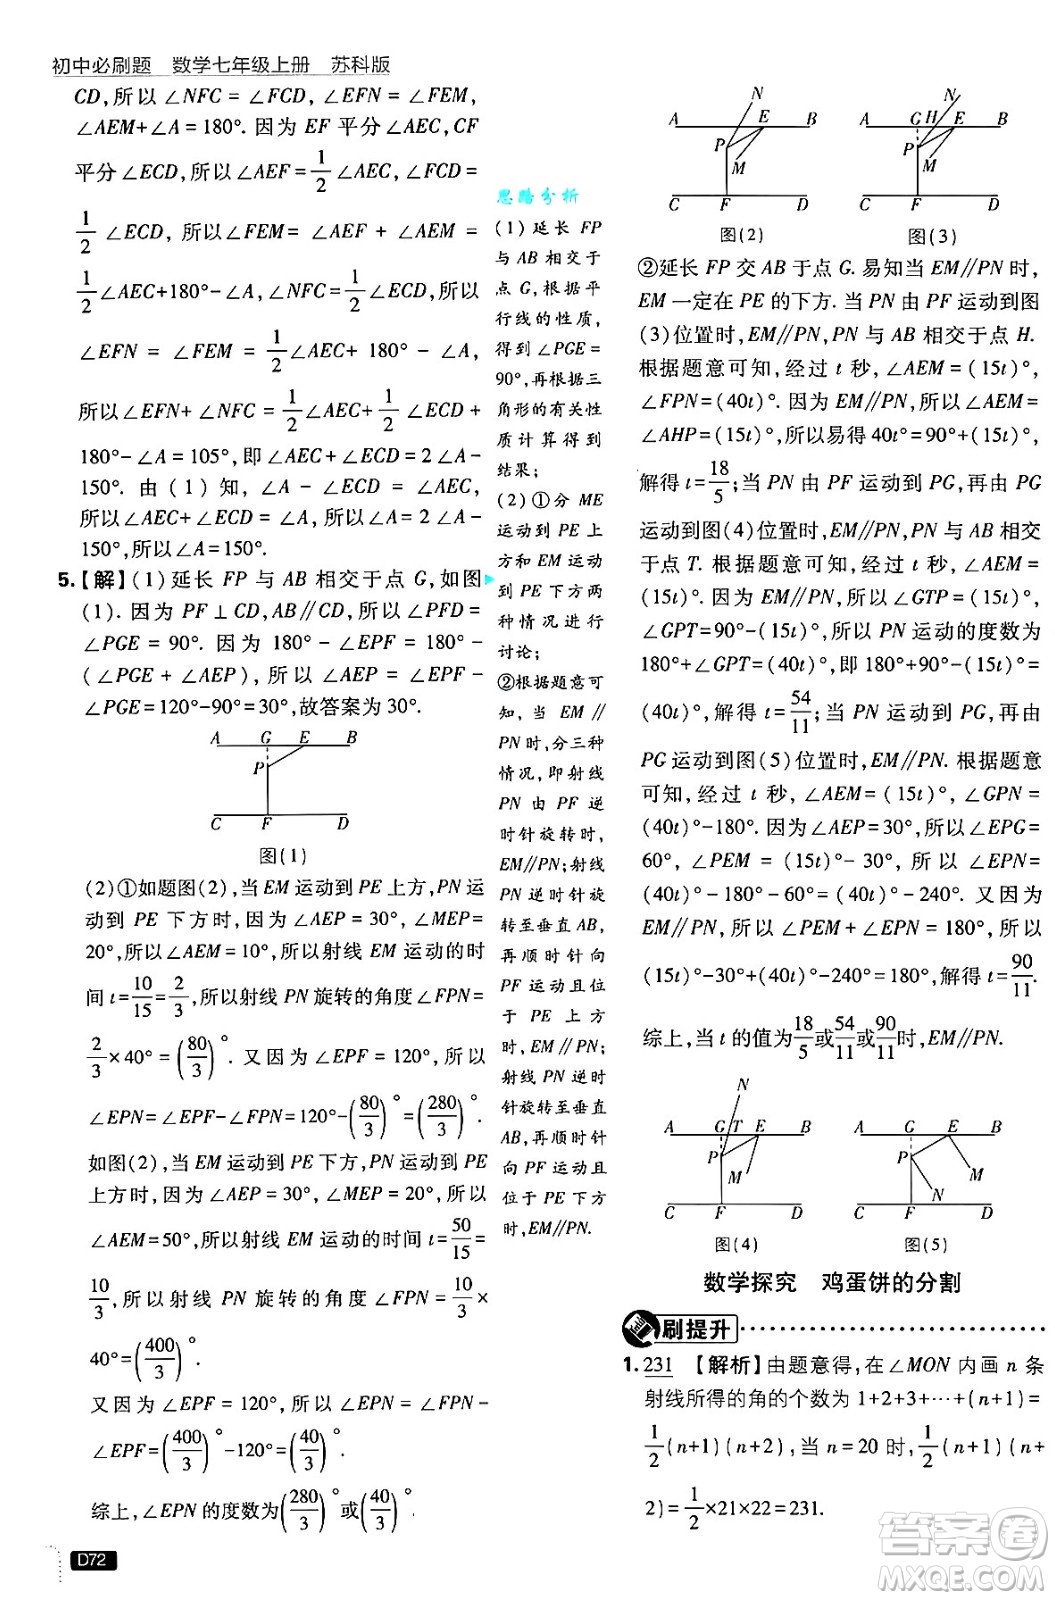 初中必刷题 数学七年级上册 苏科版
CD,所以∠NFC = ∠FCD, ∠EFN = ∠FEM,
∠AEM+∠A = 180°. 因为 EF 平分∠AEC, CF
平分∠ECD, 所以∠AEF = 1/2 ∠AEC, ∠FCD =
1/2 ∠ECD, 所以∠FEM = ∠AEF + ∠AEM =
1/2 ∠AEC+180°-∠A, ∠NFC = 1/2 ∠ECD,所以
∠EFN = ∠FEM = 1/2 ∠AEC+ 180° - ∠A,
所以∠EFN+ ∠NFC = 1/2 ∠AEC+ 1/2 ∠ECD+
180°-∠A = 105°,即∠AEC+∠ECD = 2∠A-
150°. 由(1)知, ∠A - ∠ECD = ∠AEC,
所以∠AEC+∠ECD = ∠A,所以∠A = 2∠A-
150°,所以∠A = 150°.
5.【解】(1)延长 FP 与 AB 相交于点 G,如图
(1). 因为 PF⊥CD, AB∥CD, 所以∠PFD =
∠PGE = 90°. 因为 180° - ∠EPF = 180° -
(∠PGE + ∠AEP), 所以∠AEP = ∠EPF -
∠PGE=120°-90°=30°,故答案为30°.
A G E B
P
C F D
图(1)
(2)①如题图(2),当 EM 运动到 PE 上方,PN 运
动到 PE 下方时,因为∠AEP = 30°,∠MEP=
20°,所以∠AEM=10°,所以射线 EM 运动的时
间 t=10/15=2/3,所以射线 PN 旋转的角度∠FPN=
2/3×40°=(80/3)°. 又因为∠EPF = 120°,所以
∠EPN=∠EPF-∠FPN=120°-(80/3)°=(280/3)°.
如图(2),当 EM 运动到 PE 下方,PN 运动到 PE
上方时,因为∠AEP = 30°,∠MEP = 20°,所以
∠AEM=50°,所以射线 EM 运动的时间 t=50/15=
10/3,所以射线 PN 旋转的角度∠FPN=10/3×
40°=(400/3)°.
又因为∠EPF = 120°,所以∠EPN = ∠FPN-
∠EPF=(400/3)°-120°=(40/3)°.
综上,∠EPN 的度数为(280/3)°或(40/3)°.
D72
思路分析
(1)延长 FP
与 AB 相交于
点 G,根据平
行线的性质,
得到∠PGE=
90°,再根据三
角形的有关性
质计算得到
结果;
(2)①分 ME
运动到 PE 上
方和 EM 运动
到 PE 下方两
种情况进行
讨论;
②根据题意可
知,当 EM∥
PN 时,分三种
情况,即射线
PN 由 PF 逆
时针旋转时,
EM∥PN;射线
PN 逆时针旋
转至垂直 AB,
再顺时针向
PF 运动且位
于 PE 上方
时,EM∥PN;
射线 PN 逆时
针旋转至垂直
AB,再顺时针
向 PF 运动且
位于 PE 下方
时,EM∥PN.
N
A E B
P
M
C F D
图(2)
N
A G H E B
P
M
C F D
图(3)
②延长 FP 交 AB 于点 G. 易知当 EM∥PN 时,
EM 一定在 PE 的下方. 当 PN 由 PF 运动到图
(3)位置时,EM∥PN,PN 与 AB 相交于点 H.
根据题意可知,经过 t 秒,∠AEM=(15t)°,
∠FPN=(40t)°. 因为 EM∥PN,所以∠AEM=
∠AHP=(15t)°,所以易得 40t°=90°+(15t)°,
解得 t=18/5;当 PN 由 PF 运动到 PG,再由 PG
运动到图(4)位置时,EM∥PN,PN 与 AB 相交
于点 T. 根据题意可知,经过 t 秒,∠AEM=
(15t)°. 因为 EM∥PN,所以∠GTP=(15t)°,
∠GPT=90°-(15t)°,所以 PN 运动的度数为
180°+∠GPT=(40t)°,即 180°+90°-(15t)°=
(40t)°,解得 t=54/11;当 PN 运动到 PG,再由
PG 运动到图(5)位置时,EM∥PN. 根据题意
可知,经过 t 秒,∠AEM=(15t)°,∠GPN=
(40t)°-180°. 因为∠AEP=30°,所以∠EPG=
60°,∠PEM = (15t)° - 30°,所以∠EPN=
(40t)°-180°-60°=(40t)°-240°. 又因为
EM∥PN,所以∠PEM+∠EPN=180°,所以
(15t)°-30°+(40t)°-240°=180°,解得 t=90/11.
综上,当 t 的值为18/5或54/11或90/11时,EM∥PN.
N
A G T E B
P
M
C F D
图(4)
A G E B
P
M
N
C F D
图(5)
数学探究 鸡蛋饼的分割
刷提升
1. 231 【解析】由题意得,在∠MON 内画 n 条
射线所得的角的个数为 1+2+3+⋯+(n+1)=
1/2(n+1)(n+2),当 n=20 时,1/2(n+1)(n+
2)=1/2×21×22=231.
答案圈
MXQE.COM